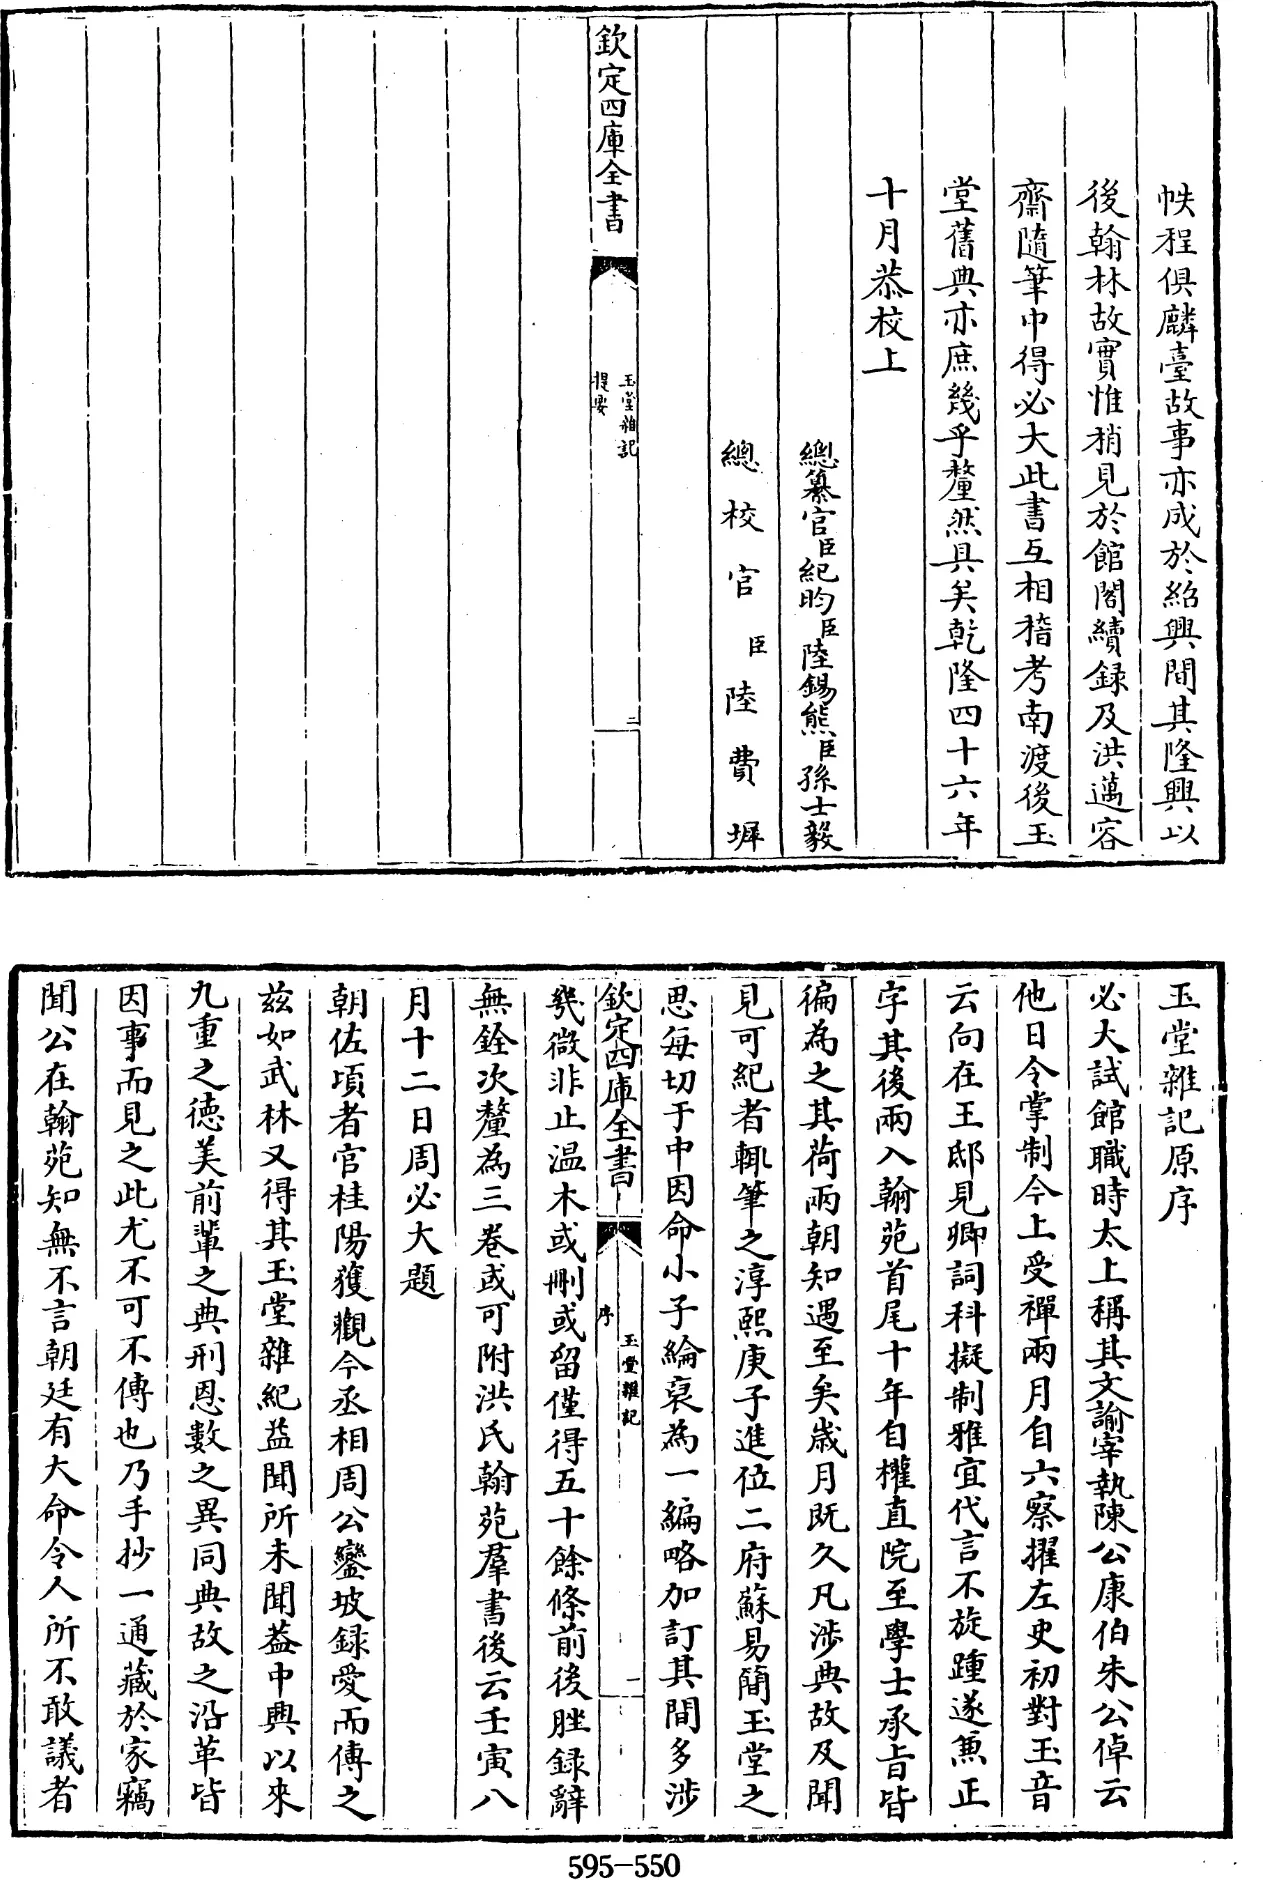 帙程俱麟臺故事亦成於紹興間其隆興以
後翰林故實惟稍見於館閣續録及洪邁容
齋隨筆中得必大此書互相稽考南渡後玉
堂舊典亦庶幾乎釐然具矣乾隆四十六年
十月恭校上
總纂官臣紀昀臣陸錫熊臣孫士毅
總校官臣陸費墀
欽定四庫全書
玉堂雜記
提要
二
玉堂雜記原序
必大試館職時太上稱其文諭宰執陳公康伯朱公倬云
他日令掌制今上受禪兩月自六察擢左史初對玉音
云向在王邸見卿詞科擬制雅宜代言不旋踵遂兼正
字其後兩入翰苑首尾十年自權直院至學士承㫖皆
徧為之其荷兩朝知遇至矣歳月既久凡涉典故及聞
見可紀者輒筆之淳熙庚子進位二府蘇易簡玉堂之
思每切于中因命小子綸裒為一編略加訂其間多涉
欽定四庫全書
玉堂雜記
序
一
幾微非止温木或刪或留僅得五十餘條前後脞録辭
無銓次釐為三巻或可附洪氏翰苑羣書後云壬寅八
月十二日周必大題
朝佐頃者官桂陽獲觀今丞相周公鑾坡録愛而傳之
兹如武林又得其玉堂雜紀益聞所未聞葢中興以來
九重之徳美前輩之典刑恩數之異同典故之沿革皆
因事而見之此尤不可不傳也乃手抄一通藏於家竊
聞公在翰苑知無不言朝廷有大命令人所不敢議者
595-550